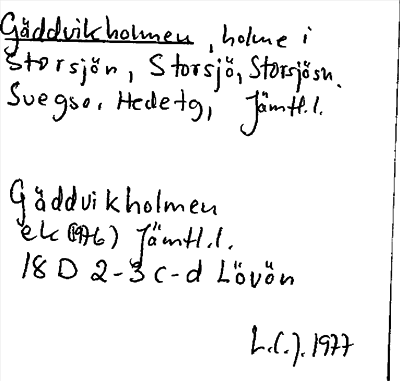 Gäddvikholmen, holme i
Storsjön, Storsjö, Storsjösn.
Svegs so. Hede tg, Jämtl.l.
Gäddvikholmen
ek (1976) Jämtl.l.
18 D 2-3 c-d Lövön
L.C.J. 1977